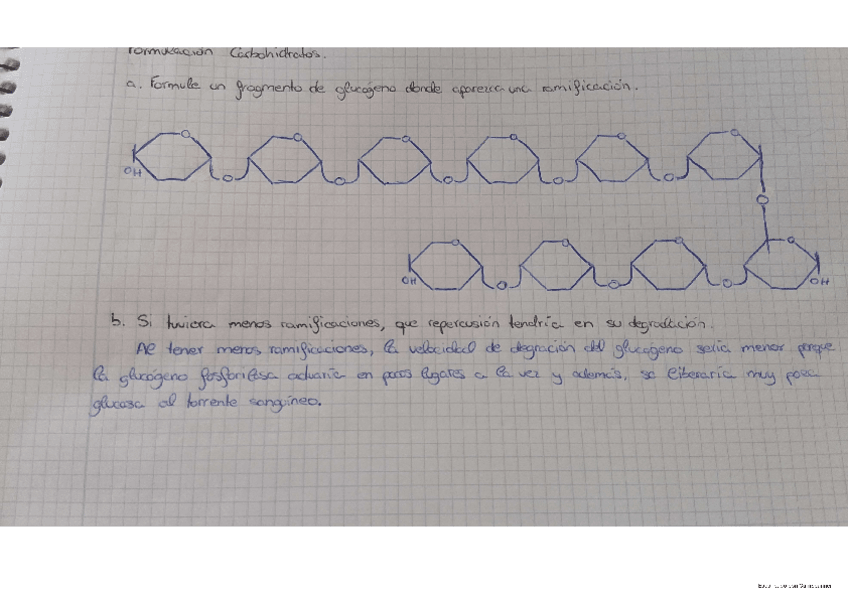 Formulación Carbohidratos.
a. Formule un fragmento de glucógeno donde aparezca una ramificación.
O O O O O O
OH O O O O O
O
O O O O
OH O O O OH
b. Si tuviera menos ramificaciones, que repercusión tendría en su degradación.
Al tener menos ramificaciones, la velocidad de degración del glucógeno sería menor porque
la glucógeno fosforilasa actuaría en pocos lugares a la vez y además, se liberaría muy poca
glucosa al torrente sanguíneo.